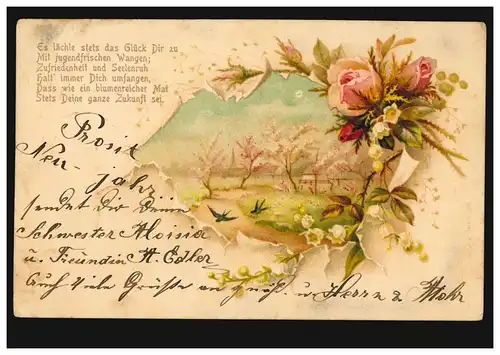 Es lächle stets das Glück Dir zu
Mit jugendfrischen Wangen;
Zufriedenheit und Seelenruh
Halt' immer Dich umfangen,
Dass wie ein blumenreicher Mai
Stets Deine ganze Zukunft sei.
Prosit
Neu-
jahr
sendet Dir Deine
Schwester Aloisia
u. Freundin A. Edler
Auch viele Grüße an gnäh. u. Herrn